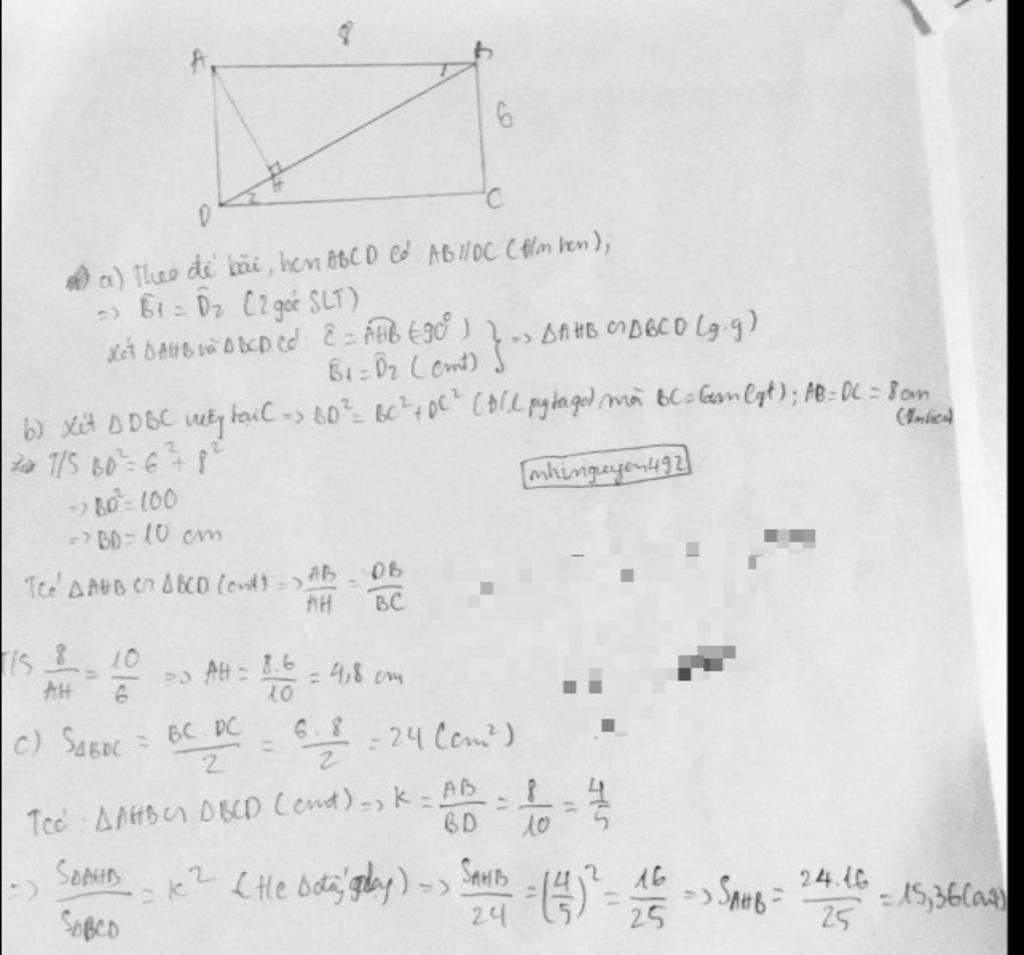 8
A
B
1
6
H
2
D
C
a) Theo đề bài, hcn ABCD có AB//DC (t/m hcn);
=> B̂1 = D̂2 (2 góc SLT)
Xét ΔAHB và ΔBCD có: Ĉ = AHB (=90°)
B̂1 = D̂2 (cmt)
} => ΔAHB ∽ ΔBCD (g.g)
b) Xét ΔDBC vuông tại C => BD² = BC² + DC² (Đ/L pytago) mà BC = 6cm (gt); AB = DC = 8cm
T/S BD² = 6² + 8²
mhinguyen492
=> BD² = 100
=> BD = 10 cm
Tcó ΔAHB ∽ ΔBCD (cmt) => AB/AH = DB/BC
T/S 8/AH = 10/6 => AH = 8.6/10 = 4,8 cm
c) SΔBDC = BC.DC/2 = 6.8/2 = 24 (cm²)
Tcó: ΔAHB ∽ ΔBCD (cmt) => K = AB/BD = 8/10 = 4/5
=> SΔAHB/SΔBCD = K² => SAHB/24 = (4/5)² = 16/25 => SAHB = 24.16/25 = 15,36